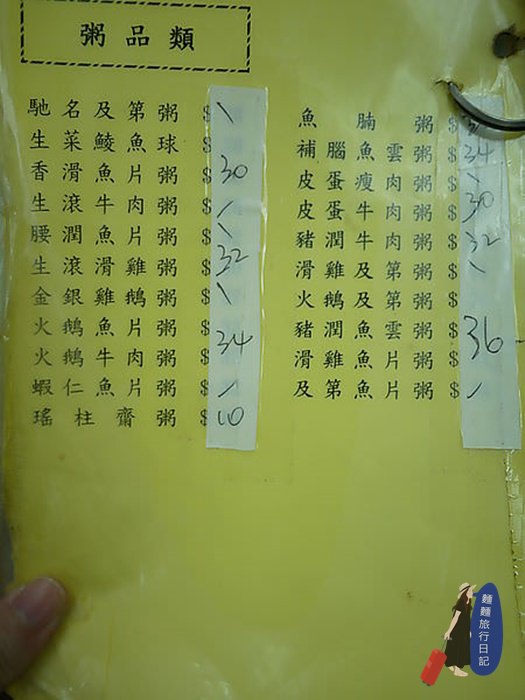 粥品類
馳名及第粥 $ \
生菜鯪魚球 $
香滑魚片粥 $ 30
生滾牛肉粥 $ /
腰潤魚片粥 $ \
生滾滑雞粥 $ 32
金銀雞鵝粥 $ \
火鵝魚片粥 $
火鵝牛肉粥 $ 34
蝦仁魚片粥 $ /
瑤柱齋粥 $ 10
魚腩粥 $
補腦魚雲粥 $ 34
皮蛋瘦肉粥 $ \
皮蛋牛肉粥 $ 30
豬潤牛肉粥 $ 32
滑雞及第粥 $ \
火鵝及第粥 $
豬潤魚雲粥 $ 36
滑雞魚片粥 $
及第魚片粥 $ /
麵麵旅行日記